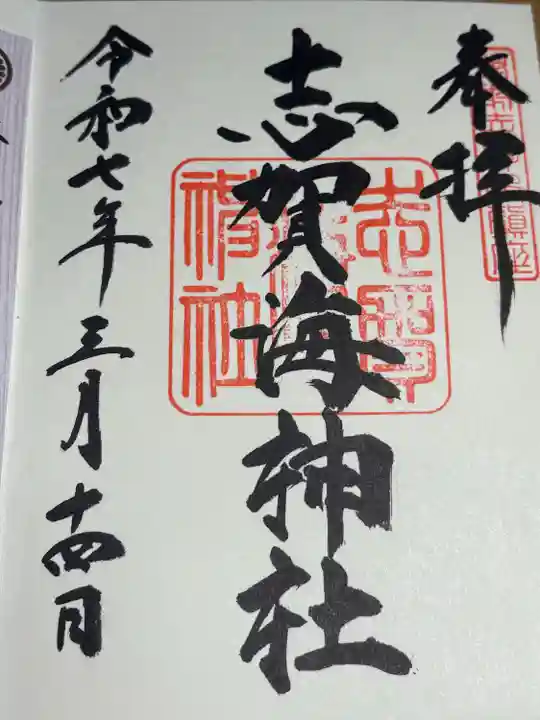 奉拝
志賀海神社
令和七年三月十四日
志賀海神社